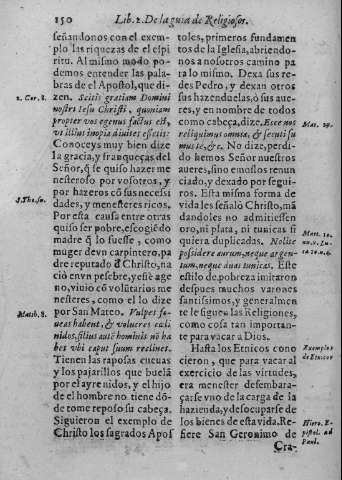 150 Lib. 2. De la guia de Religiosos.
señandonos con el exem-
plo las riquezas de el espi
ritu. Al mismo modo po-
demos entender las pala-
bras de el Apostol, que di-
zen. Scitis gratiam Domini
nostri Iesu Christi, quoniam
propter vos egenus factus est,
vt illius inopia diuites essetis:
Conoceys muy bien dize
la gracia, y franqueças del
Señor, q̃ se quiso hazer me
nesteroso por vosotros, y
por hazeros cõ sus necessi
dades, y menesteres ricos.
Por esta causa entre otras
quiso ser pobre, escogiẽdo
madre q̃ lo fuesse, como
muger de vn carpintero, pa
dre reputado d̃ Christo, na
ciò en vn pesebre, y este age
no, viuiò cõ voluntarios me
nesteres, como el lo dize
por San Mateo. Vulpes fo-
ueas habent, & volucres cæli
nidos, filius autẽ hominis nõ ha
bet vbi caput suum reclinet.
Tienen las raposas cueuas
y los pajarillos que buelã
por el ayre nidos, y el hijo
de el hombre no tiene dõ-
de tome reposo su cabeça.
Siguieron el exemplo de
Christo los sagrados Apos
2. Cor. 8.
Matth. 8.
toles, primeros fundamen
tos de la Iglesia, abriendo-
nos a nosotros camino pa
ra lo mismo. Dexa sus re-
des Pedro, y dexan otros
sus hazenduelas, ò sus aue-
res, y en nombre de todos
como cabeça, dize, Ecce nos
reliquimus omnia, & secuti su
mus te, &c. No dize, perdi-
do hemos Señor nuestros
aueres, sino emoslos renun
ciado, y dexado por segui-
ros. Esta misma forma de
vida les señalò Christo, mã
dandoles no admitiessen
oro, ni plata, ni tunicas si
quiera duplicadas. Nolite
possidere aurum, neque argen-
tum, neque duas tunicas. Este
estilo de pobreza imitaron
despues muchos varones
santissimos, y generalmen
te le sigue las Religiones,
como cosa tan importan-
te para vacar a Dios.
Hasta los Etnicos cono
cieron, que para vacar al
exercicio de las virtudes,
era menester desembara-
çarse vno de la carga de la
hazienda, y desocuparse de
los bienes de esta vida. Re-
fiere San Geronimo de
Cra-
Mat. 19.
Matt. 10.
Exemplos
de Etnicos
Hiero. E-
pistol. ad
Paul.